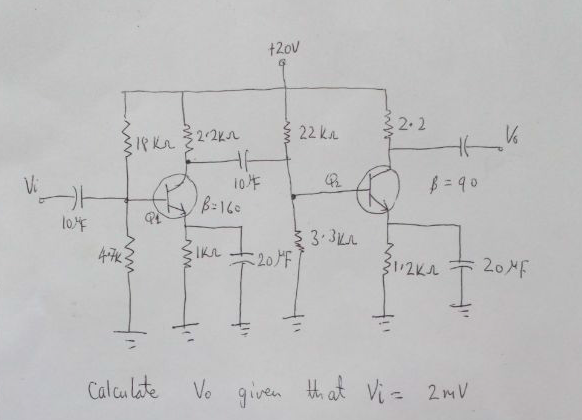 +20V
18KΩ
2.2KΩ
22KΩ
2.2
Vo
Vi
10µF
Q1
β=160
10µF
Q2
β=90
4.7K
1KΩ
20µF
3.3KΩ
1.2KΩ
20µF
Calculate Vo given that Vi = 2mV